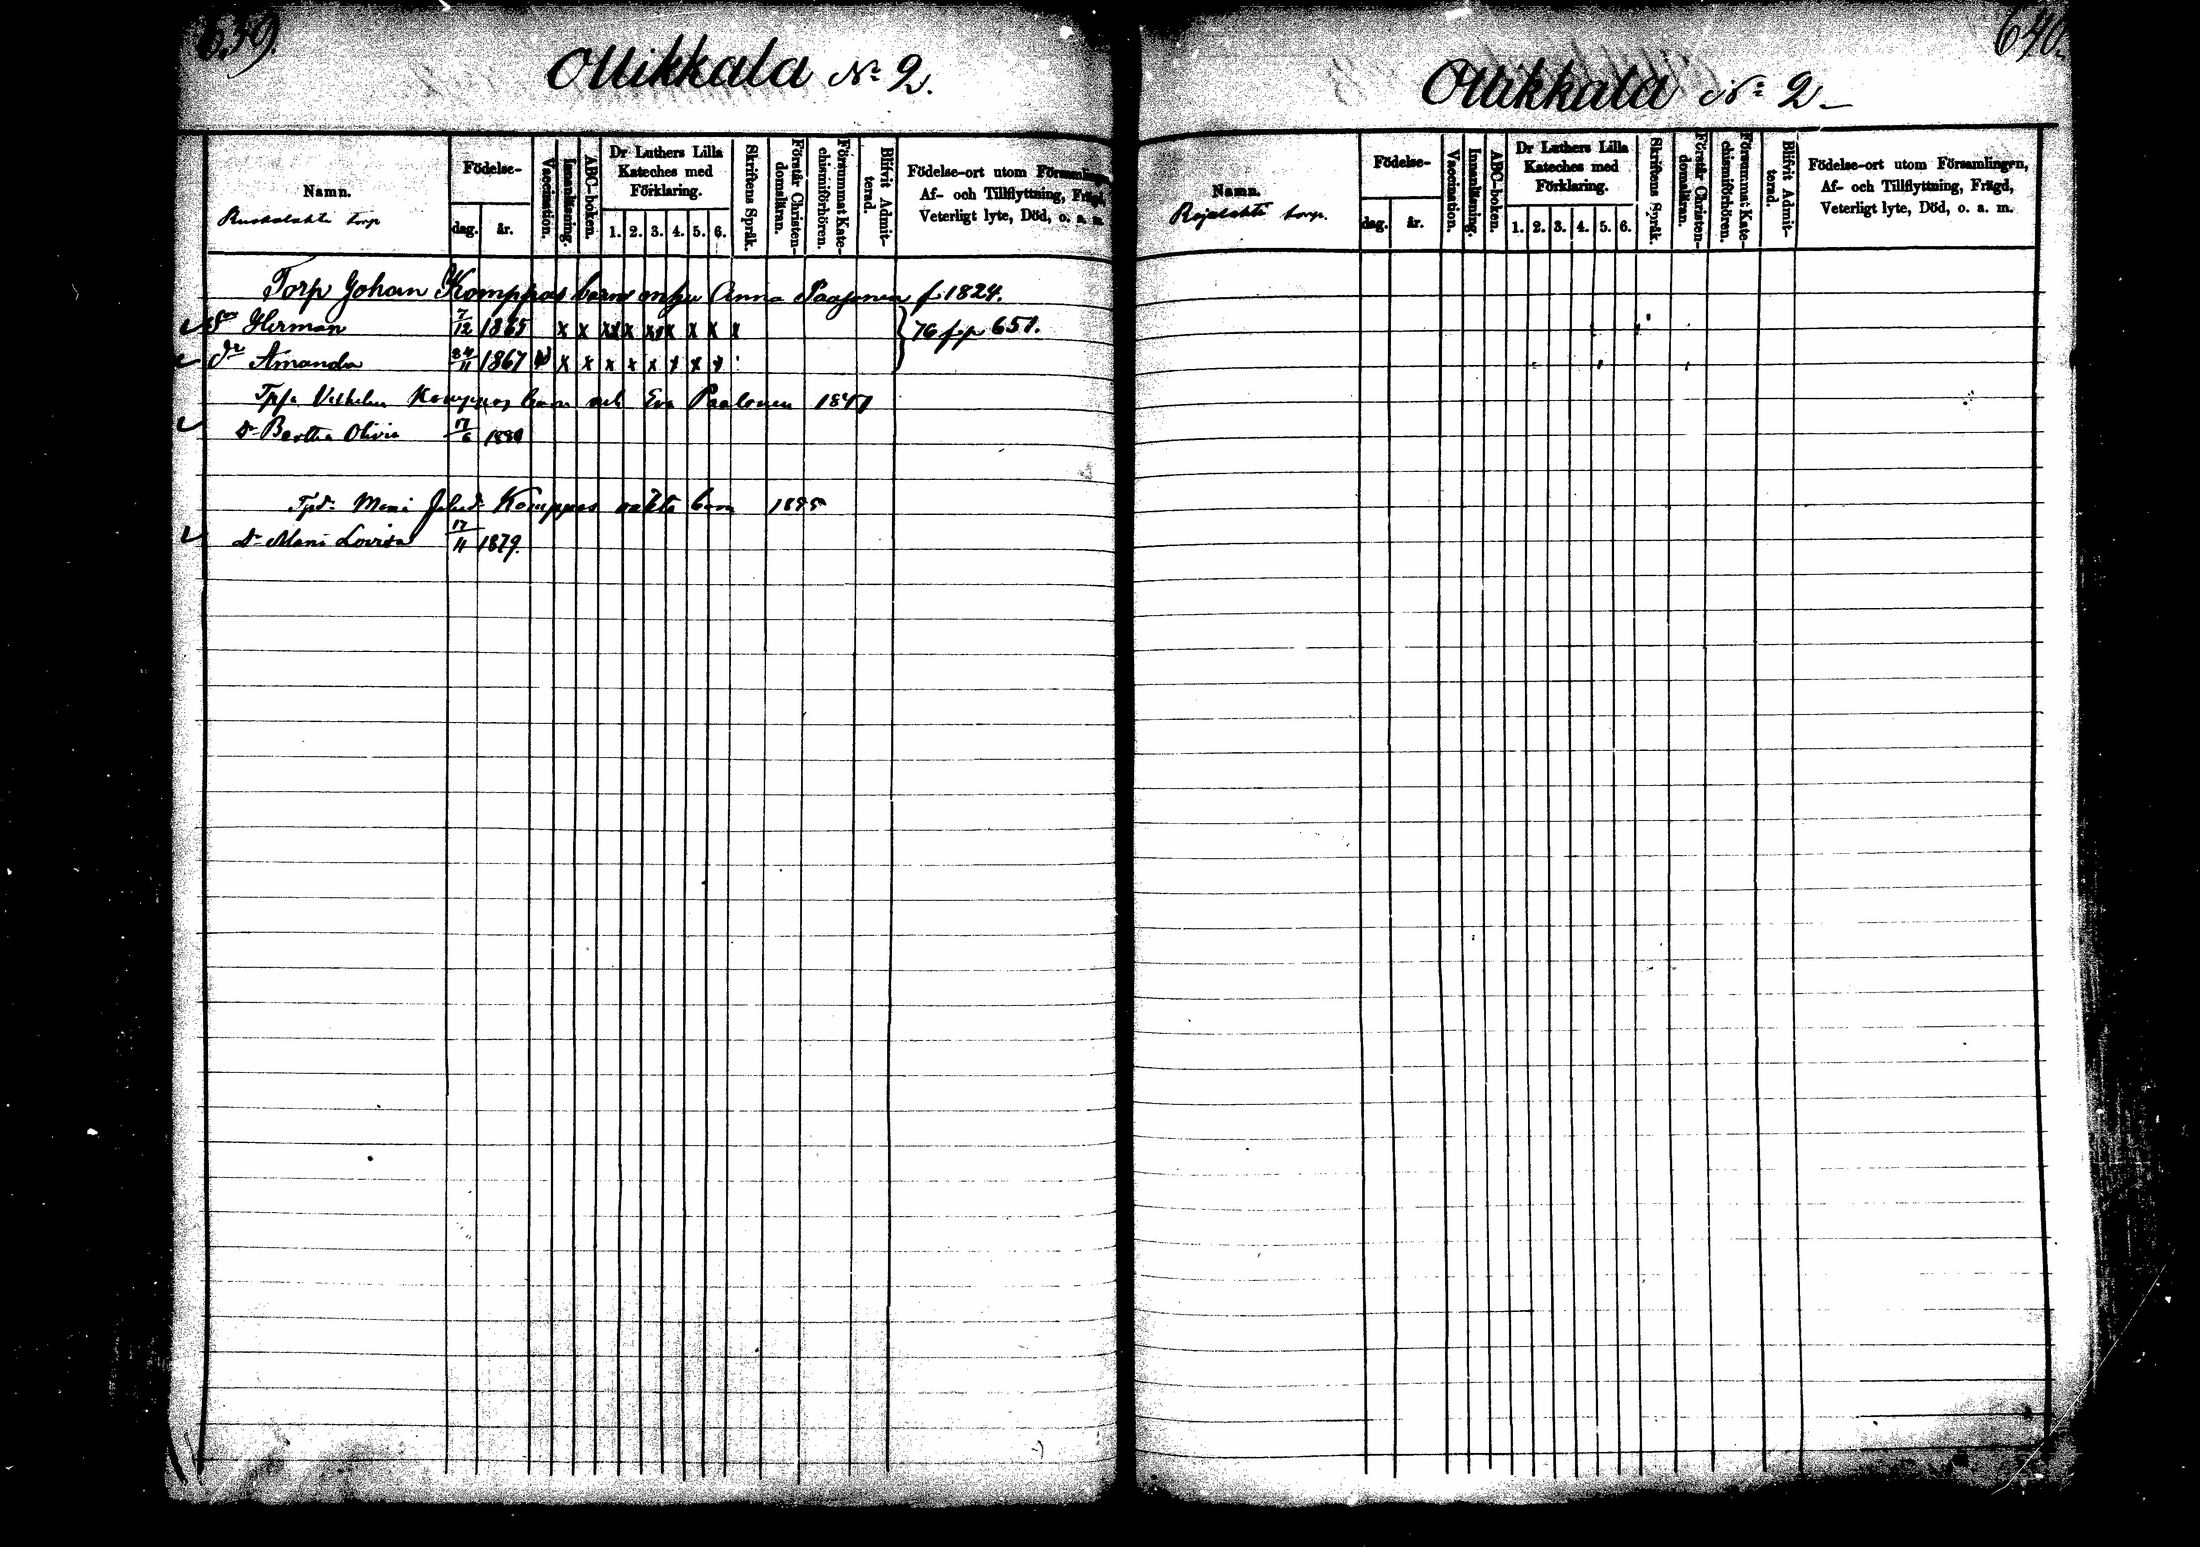 639.
Ollikkala No 2.
Namn.
Ruskolahti torp
Födelse-
dag.
år.
Vaccination.
Innanläsning.
ABC-boken.
Dr Luthers Lilla
Kateches med
Förklaring.
1. 2. 3. 4. 5. 6.
Skriftens Språk.
Förstår Christen-
domsläran.
Försummat Kate-
chismiförhören.
Blifvit Admit-
terad.
Födelse-ort utom Församlingen,
Af- och Tillflyttning, Frägd,
Veterligt lyte, Död, o. a. m.
Torp Johan Komppas barn Anna Paajanen f. 1824.
Sn Herman 7/12 1865 x x x x x x x x x x } 76 fr p 651.
dr Amanda 24/11 1867 v x x x x x x x x
Vilhelm Komppas barn Eva 1841
Dr Bertha Olivia 17/6 1880
Komppas oäkta barn
Dr Maria Lovisa 17/11 1879.
640.
Ollikkala No 2
Namn.
Rajalahti torp.
Födelse-
dag.
år.
Vaccination.
Innanläsning.
ABC-boken.
Dr Luthers Lilla
Kateches med
Förklaring.
1. 2. 3. 4. 5. 6.
Skriftens Språk.
Förstår Christen-
domsläran.
Försummat Kate-
chismiförhören.
Blifvit Admit-
terad.
Födelse-ort utom Församlingen,
Af- och Tillflyttning, Frägd,
Veterligt lyte, Död, o. a. m.